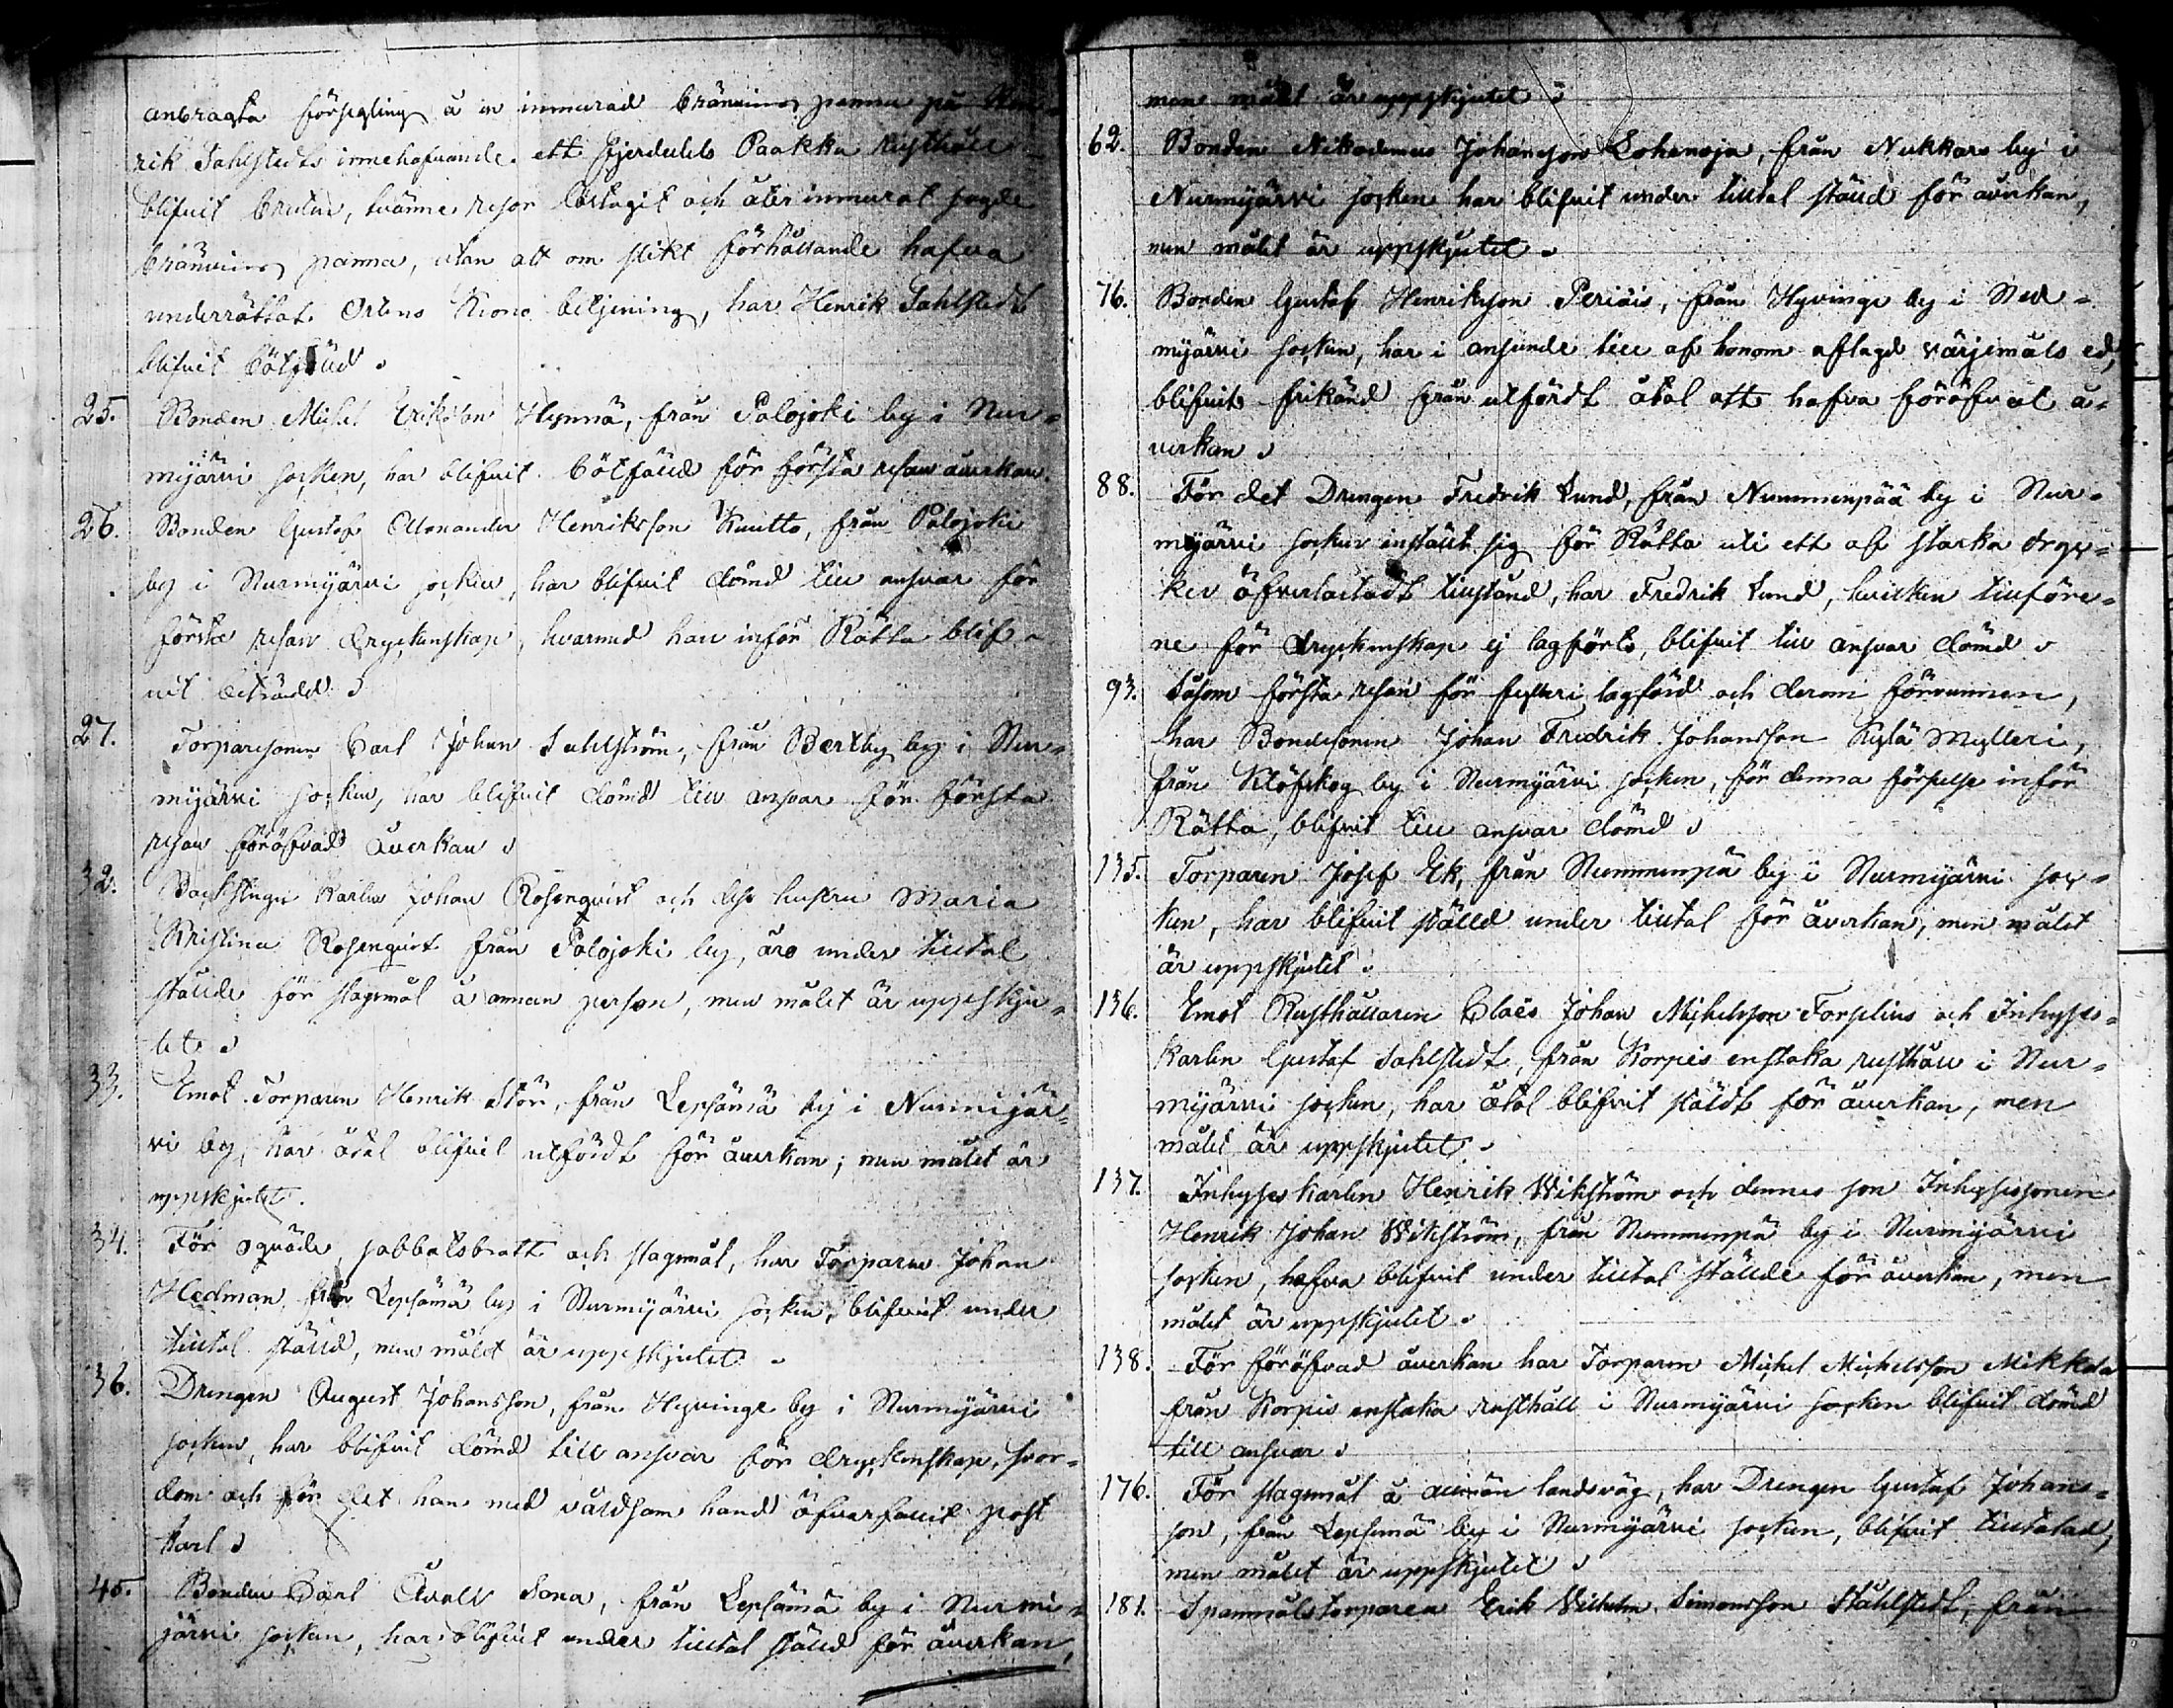 anbragta försegling å en inmurad brännvins panna på Hen-
rik Sahlstedts innehafvande ett fjerdedels Paakka rusthåll
blifvit bruten, tvänne resor löstagit och åter inmurat sagde
brännvins panna, utan att om slikt förhållande hafva
underrättat Ortens Krono betjening, har Henrik Sahlstedt
blifvit bötfäld.
25. Bonden Michel Eriksson Hynnä, från Palojoki by i Nur-
mijärvi socken, har blifvit bötfäld för första resan åverkan.
26. Bonden Gustaf Allexander Henriksson Knuitto, från Palojoki
by i Nurmijärvi socken, har blifvit dömd till ansvar för
första resan dryckenskap, hvarmed han inför Rätta blif-
vit beträdd.
27. Torparesonen Carl Johan Sahlström, från Bertby by i Nur-
mijärvi socken, har blifvit dömd till ansvar för första
resan föröfvad åverkan.
32. Backstugu Karlen Johan Rosenqvist och dess hustru Maria
Kristina Rosenqvist från Palojoki by, äro under tilltal
stälde för slagsmål å annan person, men målet är uppskju-
tet.
33. Emot Torparen Henrik Stör, från Lepsämä by i Nurmijär-
vi by, har åtal blifvit utfördt för åverkan; men målet är
uppskjutet.
34. För oqväde, sabbatsbrott och slagsmål, har Torparen Johan
Hedman, från Lepsämä by i Nurmijärvi socken, blifvit under
tilltal stäld, men målet är uppskjutet.
36. Drengen August Johansson, från Hyvinge by i Nurmijärvi
socken, har blifvit dömd till ansvar för dryckenskap, svor-
dom och för det han med våldsam hand öfverfallit post
karl.
45. Bonden Carl Evald Sona, från Lepsämä by i Nurmi-
järvi socken, har blifvit under tilltal stäld för åverkan,
men målet är uppskjutet.
62. Bonden Nikodemus Johansson Lohenoja, från Nukkars by i
Nurmijärvi socken har blifvit under tilltal stäld för åverkan,
men målet är uppskjutet.
76. Bonden Gustaf Henriksson Periäis, från Hyvinge by i Nur-
mijärvi socken, har i anseende till af honom aflagd värjemåls ed,
blifvit frikänd från utfördt åtal att hafva föröfvat å-
verkan.
88. För det Drengen Fredrik Lund, från Nummenpää by i Nur-
mijärvi socken instält sig för Rätta uti ett af starka dryc-
ker öfverlastadt tillstånd, har Fredrik Lund, hvilken tillföre-
ne för dryckenskap ej lagförts, blifvit till ansvar dömd.
93. Såsom första resan för fylleri lagförd och derom förvunnen,
har Bondesonen Johan Fredrik Johansson Kylä Mylleri,
från Klöfskog by i Nurmijärvi socken, för denna förseelse inför
Rätta, blifvit till ansvar dömd.
135. Torparen Josef Ek, från Nummenpä by i Nurmijärvi soc-
ken, har blifvit ställd under tilltal för åverkan, men målet
är uppskjutet.
136. Emot Rusthållaren Claës Johan Michelsson Forselius och Inhyses-
karlen Gustaf Sahlstedt, från Korpis enstaka rusthåll i Nur-
mijärvi socken, har åtal blifvit stäldt för åverkan, men
målet är uppskjutet.
137. Inhyses karlen Henrik Wikström och dennes son Inhysessonen
Henrik Johan Wikström, från Nummenpä by i Nurmijärvi
socken, hafva blifvit under tilltal stälde för åverkan, men
målet är uppskjutet.
138. För föröfvad åverkan har Torparen Michel Michelsson Mikkola
från Korpis enstaka rusthåll i Nurmijärvi socken blifvit dömd
till ansvar.
176. För slagsmål å allmän landsväg, har Drengen Gustaf Johans-
son, från Lepsemä by i Nurmijärvi socken, blifvit tilltalad,
men målet är uppskjutet.
181. Spannmålstorparen Erik Vilhelm Simonsson Ståhlstedt, från